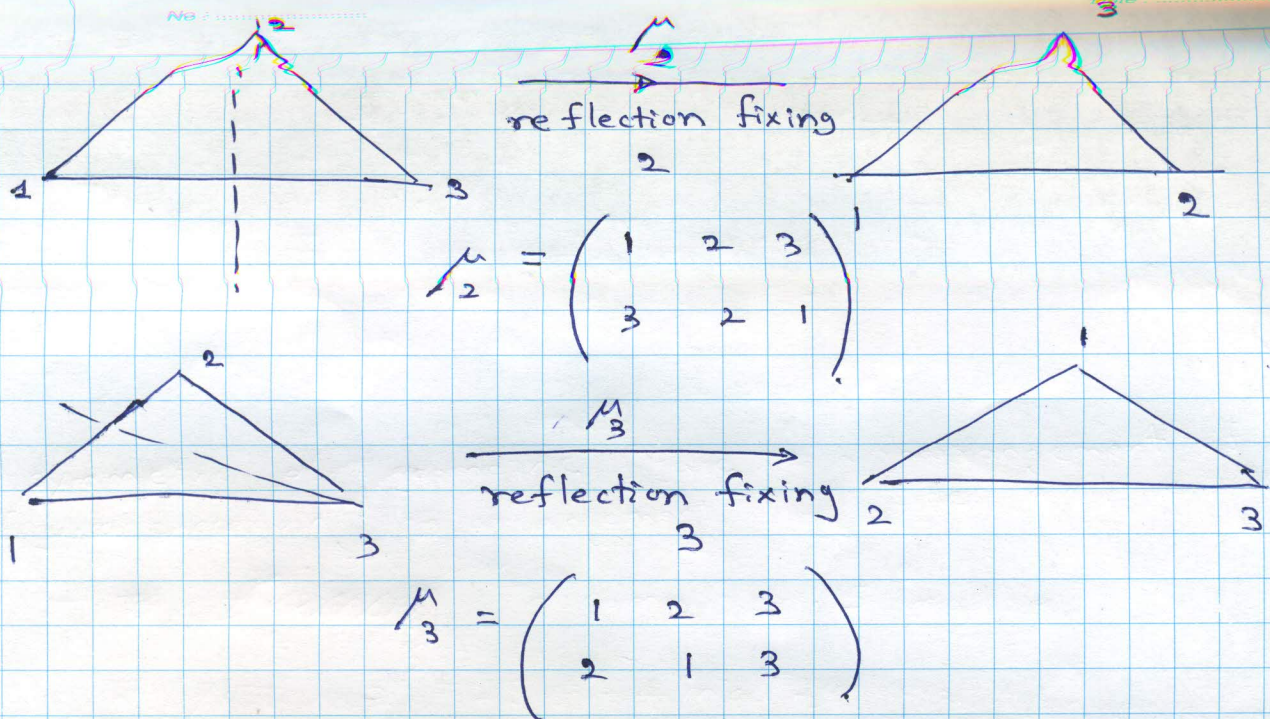 No
2 μ 3
2
1 3 reflection fixing 1 2
2
μ2 = ( 1 2 3
3 2 1 ).
2 1
μ3
1 3 reflection fixing 2 3
3
μ3 = ( 1 2 3
2 1 3 ).